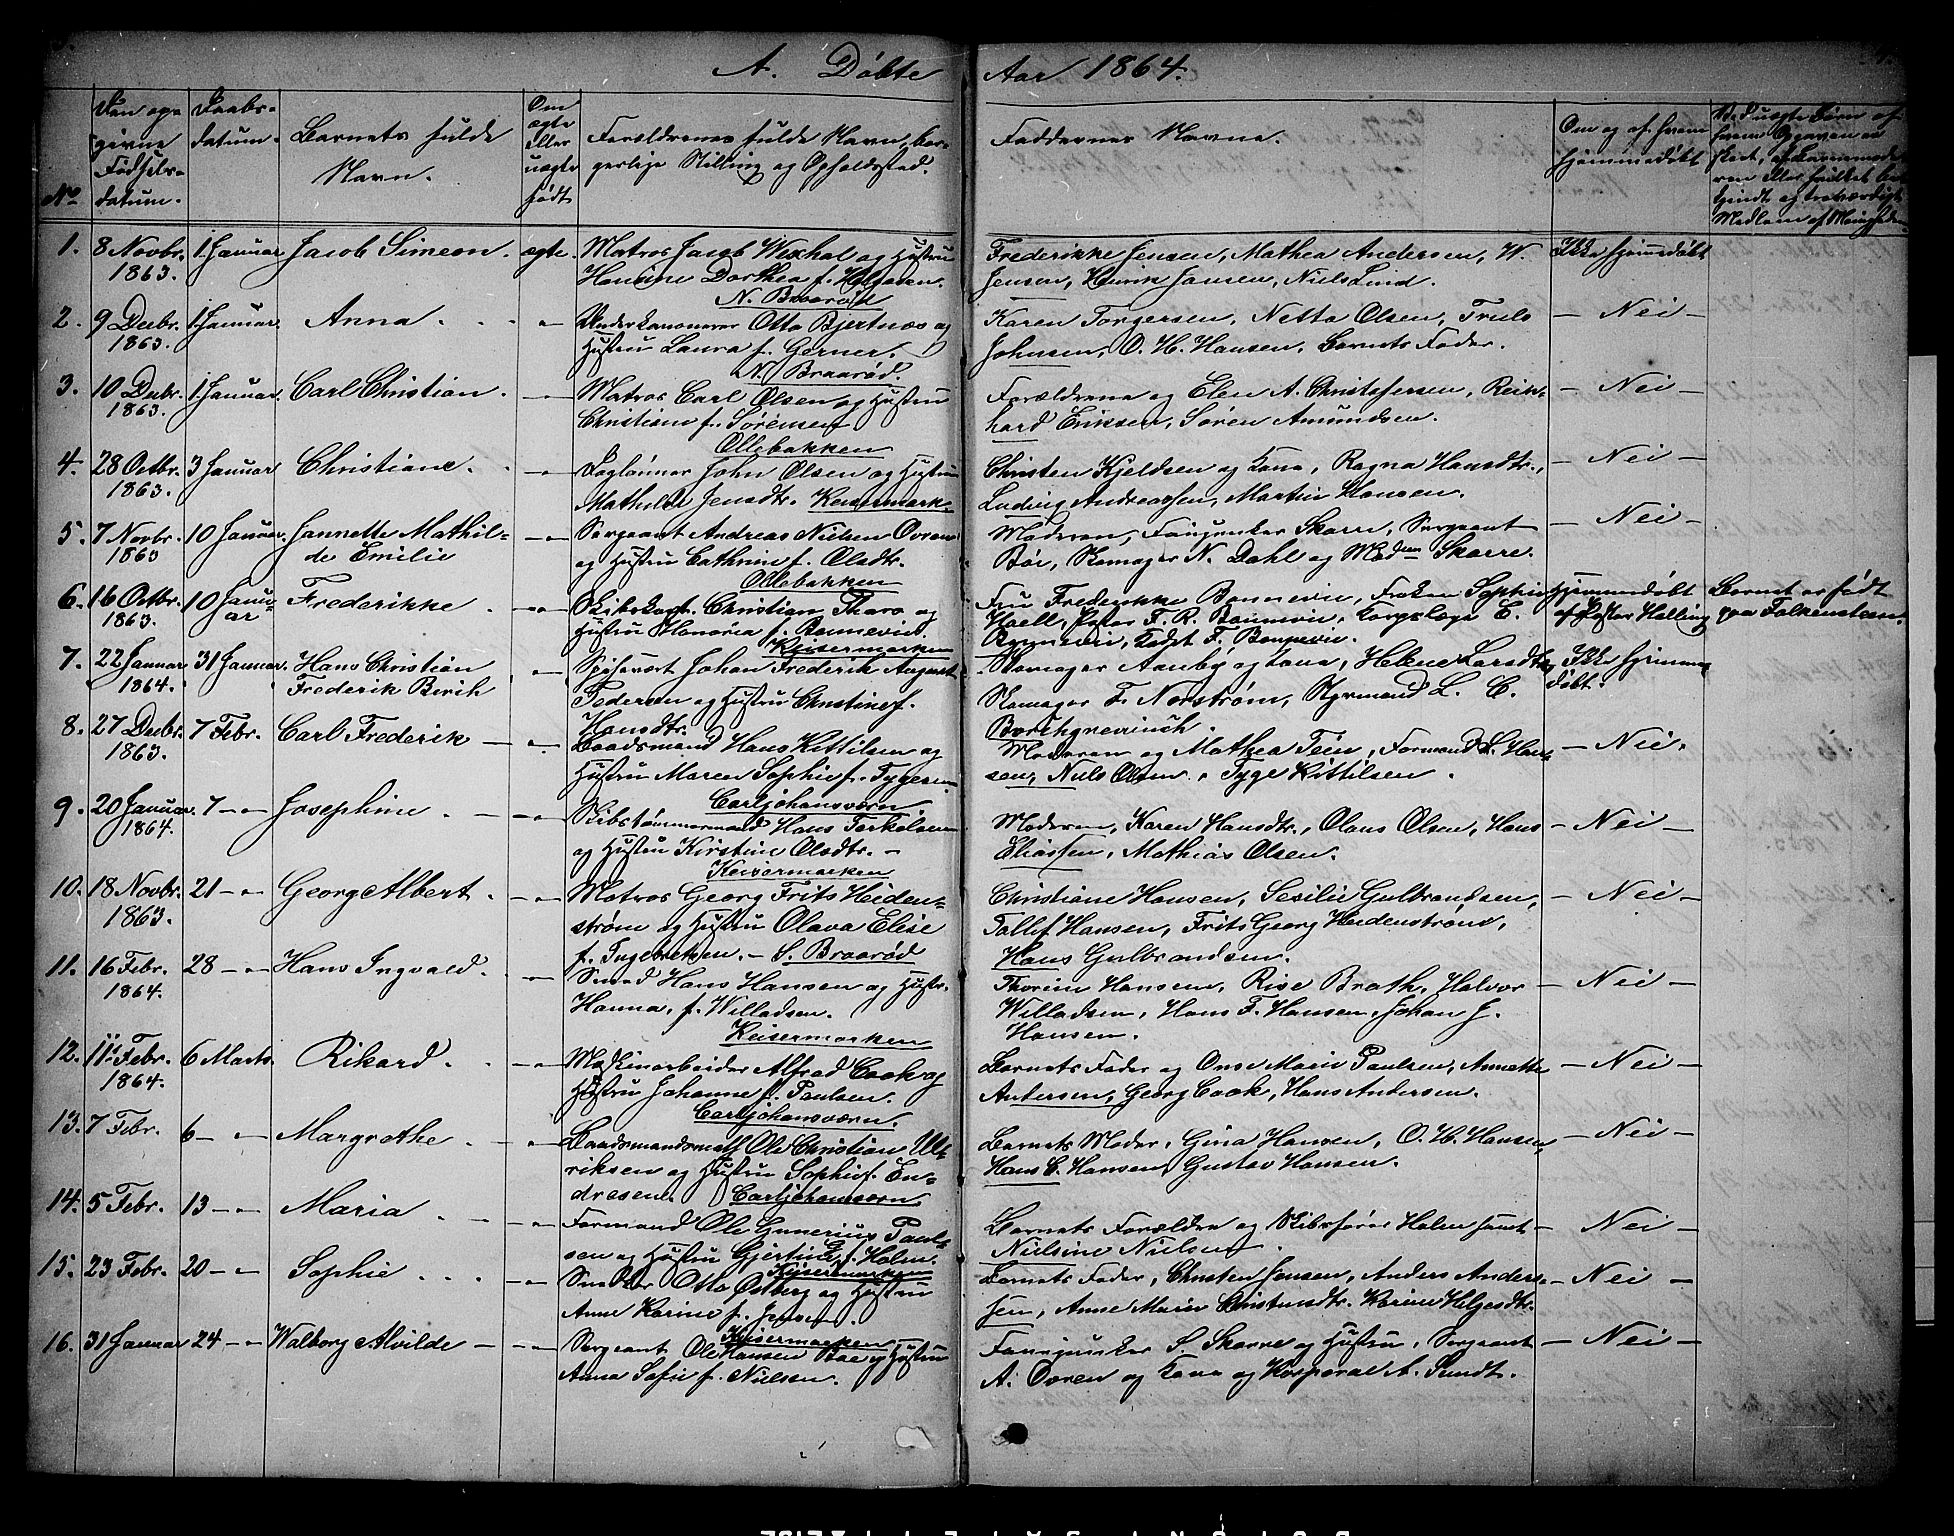 A. Døbte Aar 1864.
No
Den opgivne Fødselsdatum.
Daabsdatum.
Barnets fulde Navn.
Om ægte eller uægte født
Forældrenes fulde Navn, borgerlige Stilling og Opholdssted.
Faddernes Navne.
Om og af hvem hjemmedøbt
1. 8 Novbr. 1863. 1 Januar Jacob Simeon. ægte. Matros Jacob Wexhal og Hustru
Hansine Dorthea f. Helgesen.
N. Braarød
Frederikke Jensen, Mathea Andersen, W.
Jensen, Henrik Jansen, Niels Lind.
Ikke hjemmedøbt
2. 9 Decbr. 1863. 1 Januar. Anna. Underkanoneer Otto Bjertnæs og
Hustru Laura f. Gerner.
N. Braarød.
Karen Torgersen, Netta Olsen, Truls
Johnsen, O. H. Hansen, Barnets Fader.
- Nei -
3. 10 Decbr. 1863. 1 Januar. Carl Christian. Matros Carl Olsen og Hustru
Christiane f. Sørensen
Ollebakken
Forældrene og Elen A. Christofersen, Reinhard Eriksen, Søren Amundsen.
- Nei -
4. 28 Octbr. 1863. 3 Januar Christiane. Daglønner John Olsen og Hustru
Mathilde Jensdtr. Keisermark-
Christen Kjeldsen og Kona, Ragna Hansdtr.,
Ludvig Andreassen, Martin Hansen.
- Nei -
5. 7 Novbr. 1863 10 Januar. Jannette Mathilde Emilie Sergeant Andreas Nielsen Ovren
og Hustru Cathrine f. Olsdtr.
Ollebakken
Moderen, Fanejunker Skarre, Sergeant
Bøe, Skomager N. Dahl og Madm Skarre.
- Nei -
6. 16 Octbr. 1863. 10 Januar Frederikke. Skibskapt. Christian Tharo og
Hustru Honoria f. Bonnevie.
Keisermarken
Fru Frederikke Bonnevie, Frøken Sophie
Hoell, Pastor F. R. Bonnevie, Korpslæge E.
Bonnevie, Kadet F. Bonnevie.
Hjemmedøbt
af Pastor Halling
Barnet er født
paa Falkensteen.
7. 22 Januar 1864. 31 Januar. Hans Christian
Frederik Birih Spisevært Johan Frederik August
Pedersen og Hustru Christine f.
Hansdtr.
Skomager Aanby og Kona, Helene Larsdtr,
Skomager F. Norstrøm, Styrmand L. C.
Ikke hjemmedøbt.
8. 27 Decbr. 1863. 7 Febr. Carl Frederik Baadsmand Hans Kittilsen og
Hustru Maren Sophie f. Tygesen
Carljohansværn
Moderen og Mathea Tein, Formand L. Hansen, Niels Olsen, Tyge Kittilsen.
- Nei.
9. 20 Januar 1864. 7 Josephine Skibstømmermand Hans Terkelsen
og Hustru Kirstine Olsdtr.
Keisermarken
Moderen, Karen Hansdtr., Olaus Olsen, Hans
Eliassen, Mathias Olsen.
- Nei -
10. 18 Novbr. 1863. 21 Georg Albert. Matros Georg Frits Heidenstrøm og Hustru Olava Elise
f. Ingebretsen. - S. Braarød
Christiane Hansen, Sesilie Gulbrandsen,
Tallef Hansen, Frits Georg Heidenstrøm,
Hans Gulbrandsen.
- Nei -
11. 16 Febr. 1864. 28 Hans Ingvald. Smed Hans Hansen og Hustr.
Hanna, f. Willadsen.
Keisermarken
Thorine Hansen, Rise Brath, Halvor
Willadsen, Hans F. Hansen, Johan J.
Hansen.
- Nei -
12. 11 Febr. 1864. 6 Marts. Rikard. Maskinarbeider Alfred Cook og
Hustru Johanne f. Paulsen.
Carljohansværn.
Barnets Fader og Ons. Marie Paulsen, Annette
Andersen, Georg Cook, Hans Andersen.
- Nei -
13. 7 Febr. 6 Margrethe. Baadsmandsmath Ole Christian Ulriksen og Hustru Sophie f. Endresen. Carljohansværn.
Barnets Moder, Gina Hansen, O. H. Hansen,
Hans C. Hansen, Gustav Hansen.
- Nei -
14. 5 Febr. 13 Maria. Formand Ole Gunerius Paulsen og Hustru Gjertine f. Holm.
Keisermarken
Barnets Forældre og Skibsfører Holm samt
Nielsine Nielsen.
- Nei -
15. 23 Febr. 20 Sophie. Otto Østberg og Hustru
Anne Karine f. Jensen.
Keisermarken
Barnets Fader, Christen Jensen, Anders Andersen, Anne Marie Christensdtr. Karine Helgesdtr.
- Nei -
16. 31 Januar 24 Walborg Alvilde Sergeant Ole Hansen Bøe og Hustru
Anna Sofie f. Nielsen.
Fanejunker S. Skarre og Hustru, Sergeant
A. Ovren og Kona og Korporal A. Sundt.
- Nei -